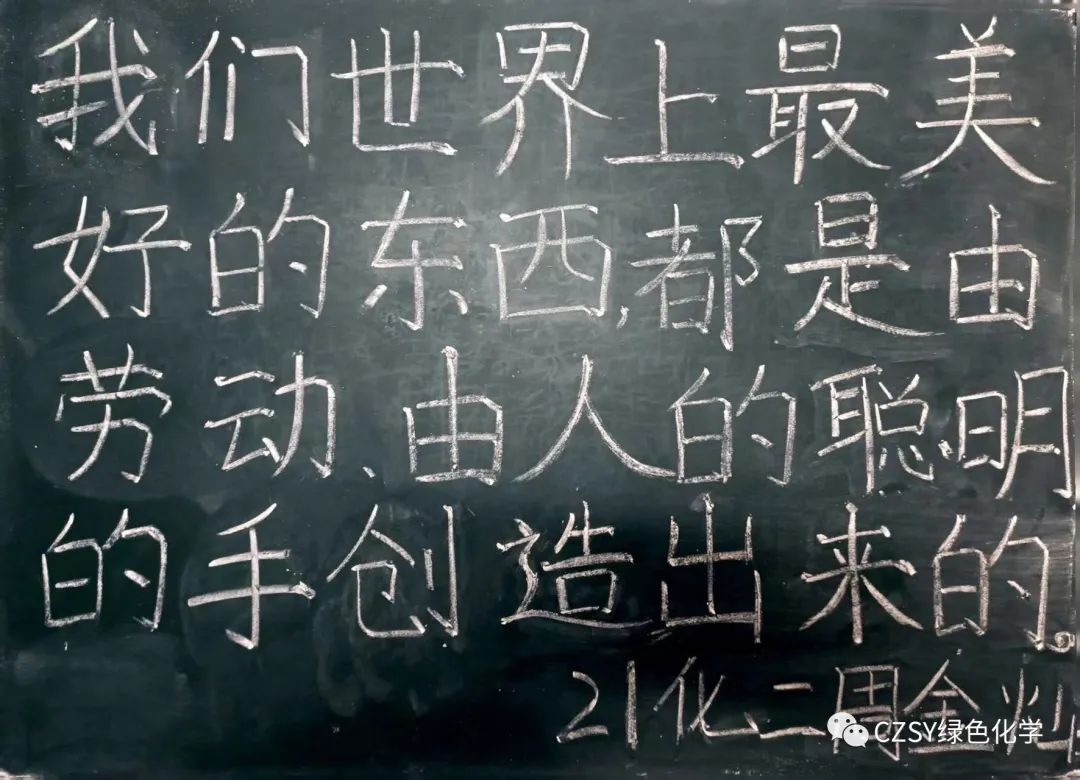 我们世界上最美
好的东西,都是由
劳动、由人的聪明
的手创造出来的。
21化二周金
CZSY绿色化学